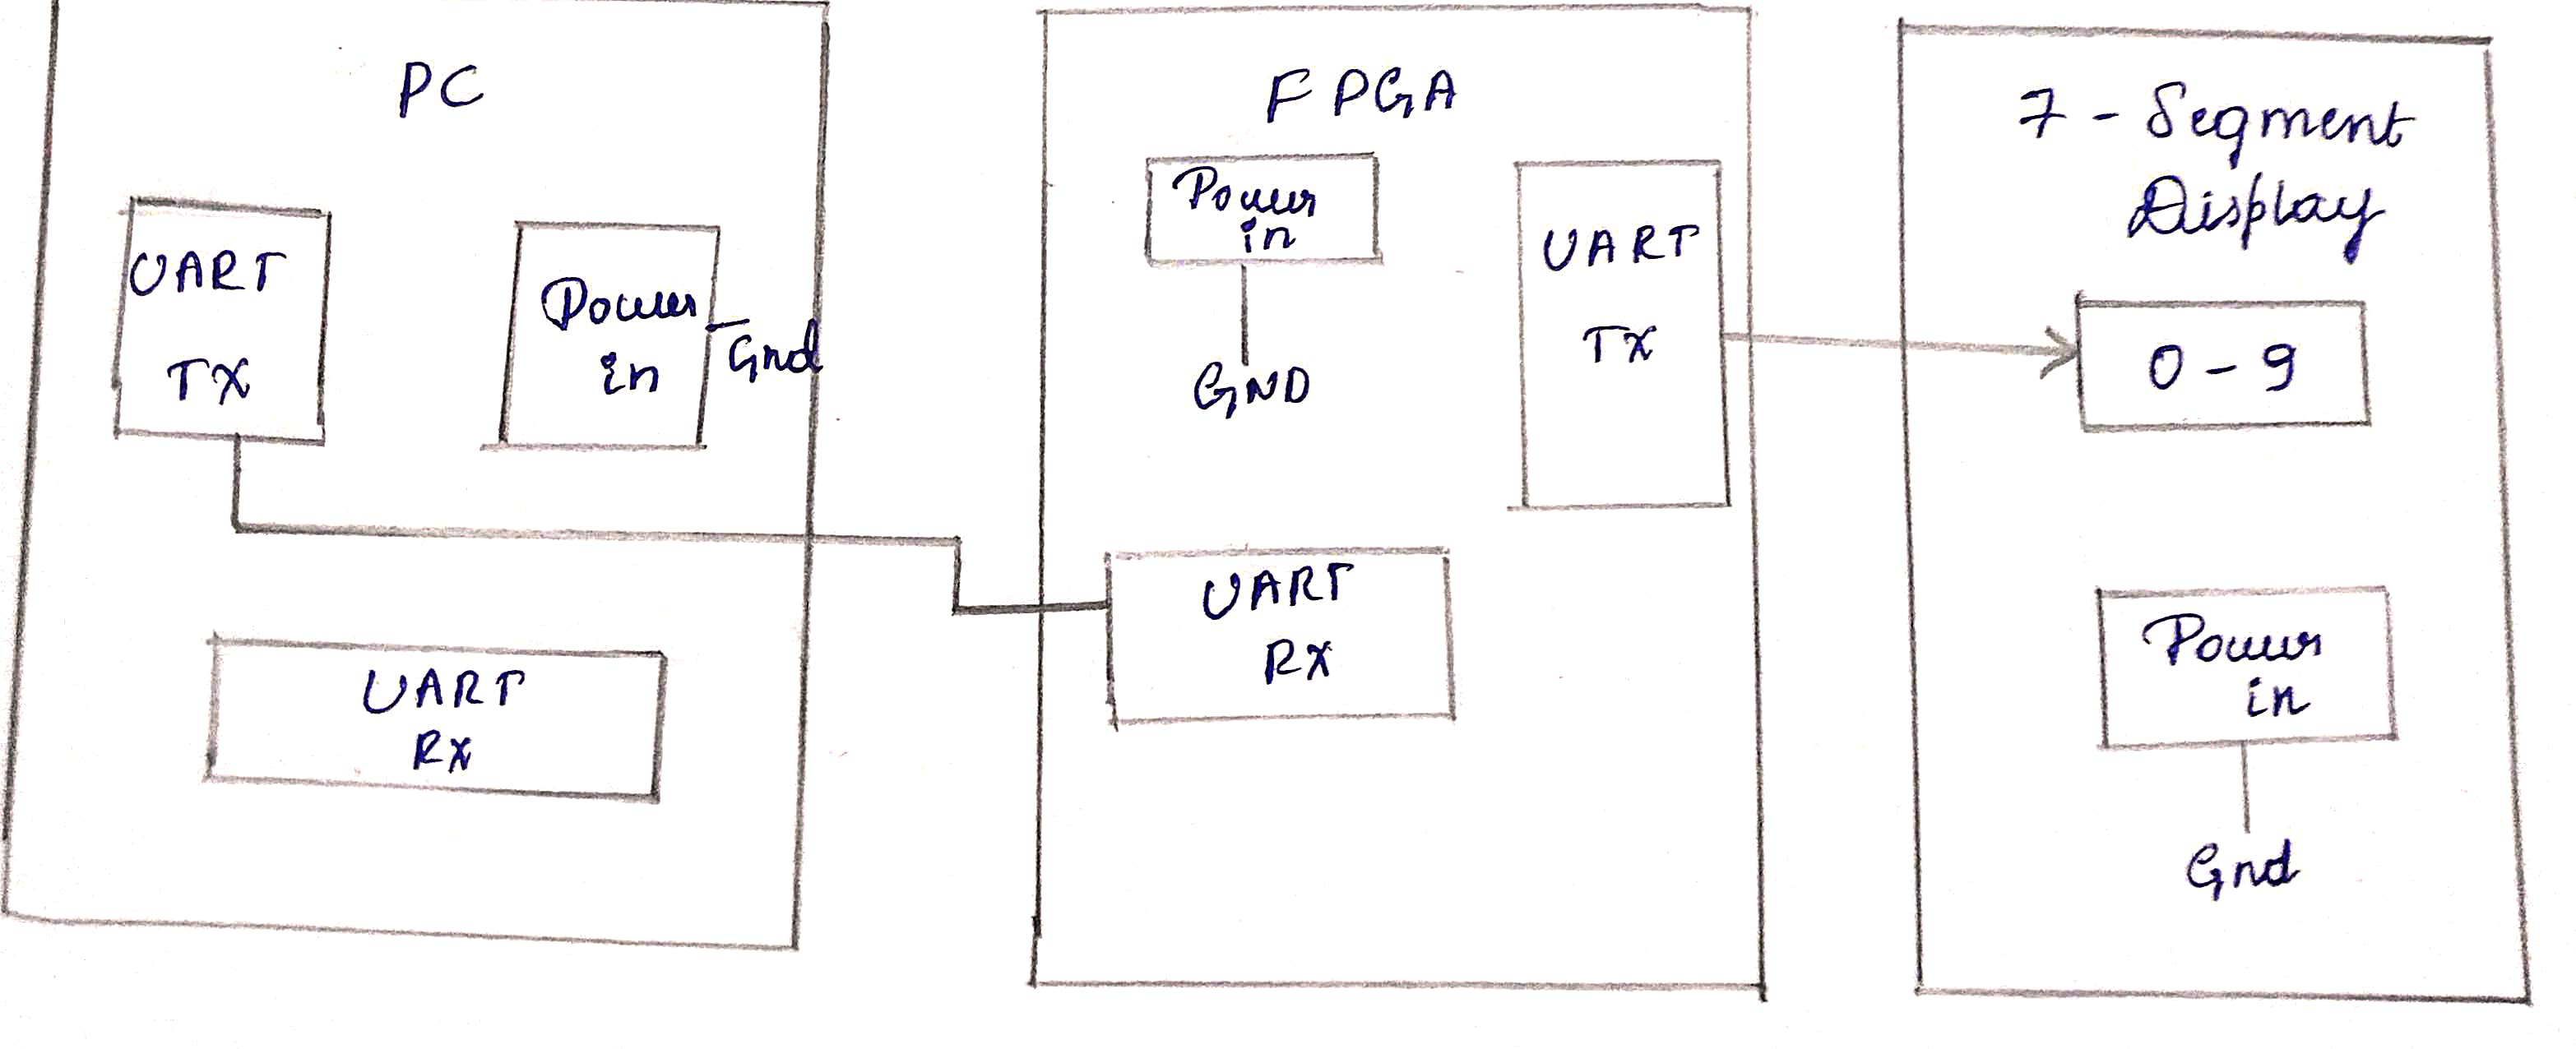 PC
UART
TX
Power
in
Gnd
UART
RX
FPGA
Power
in
GND
UART
TX
UART
RX
7 - Segment
Display
0 - 9
Power
in
Gnd